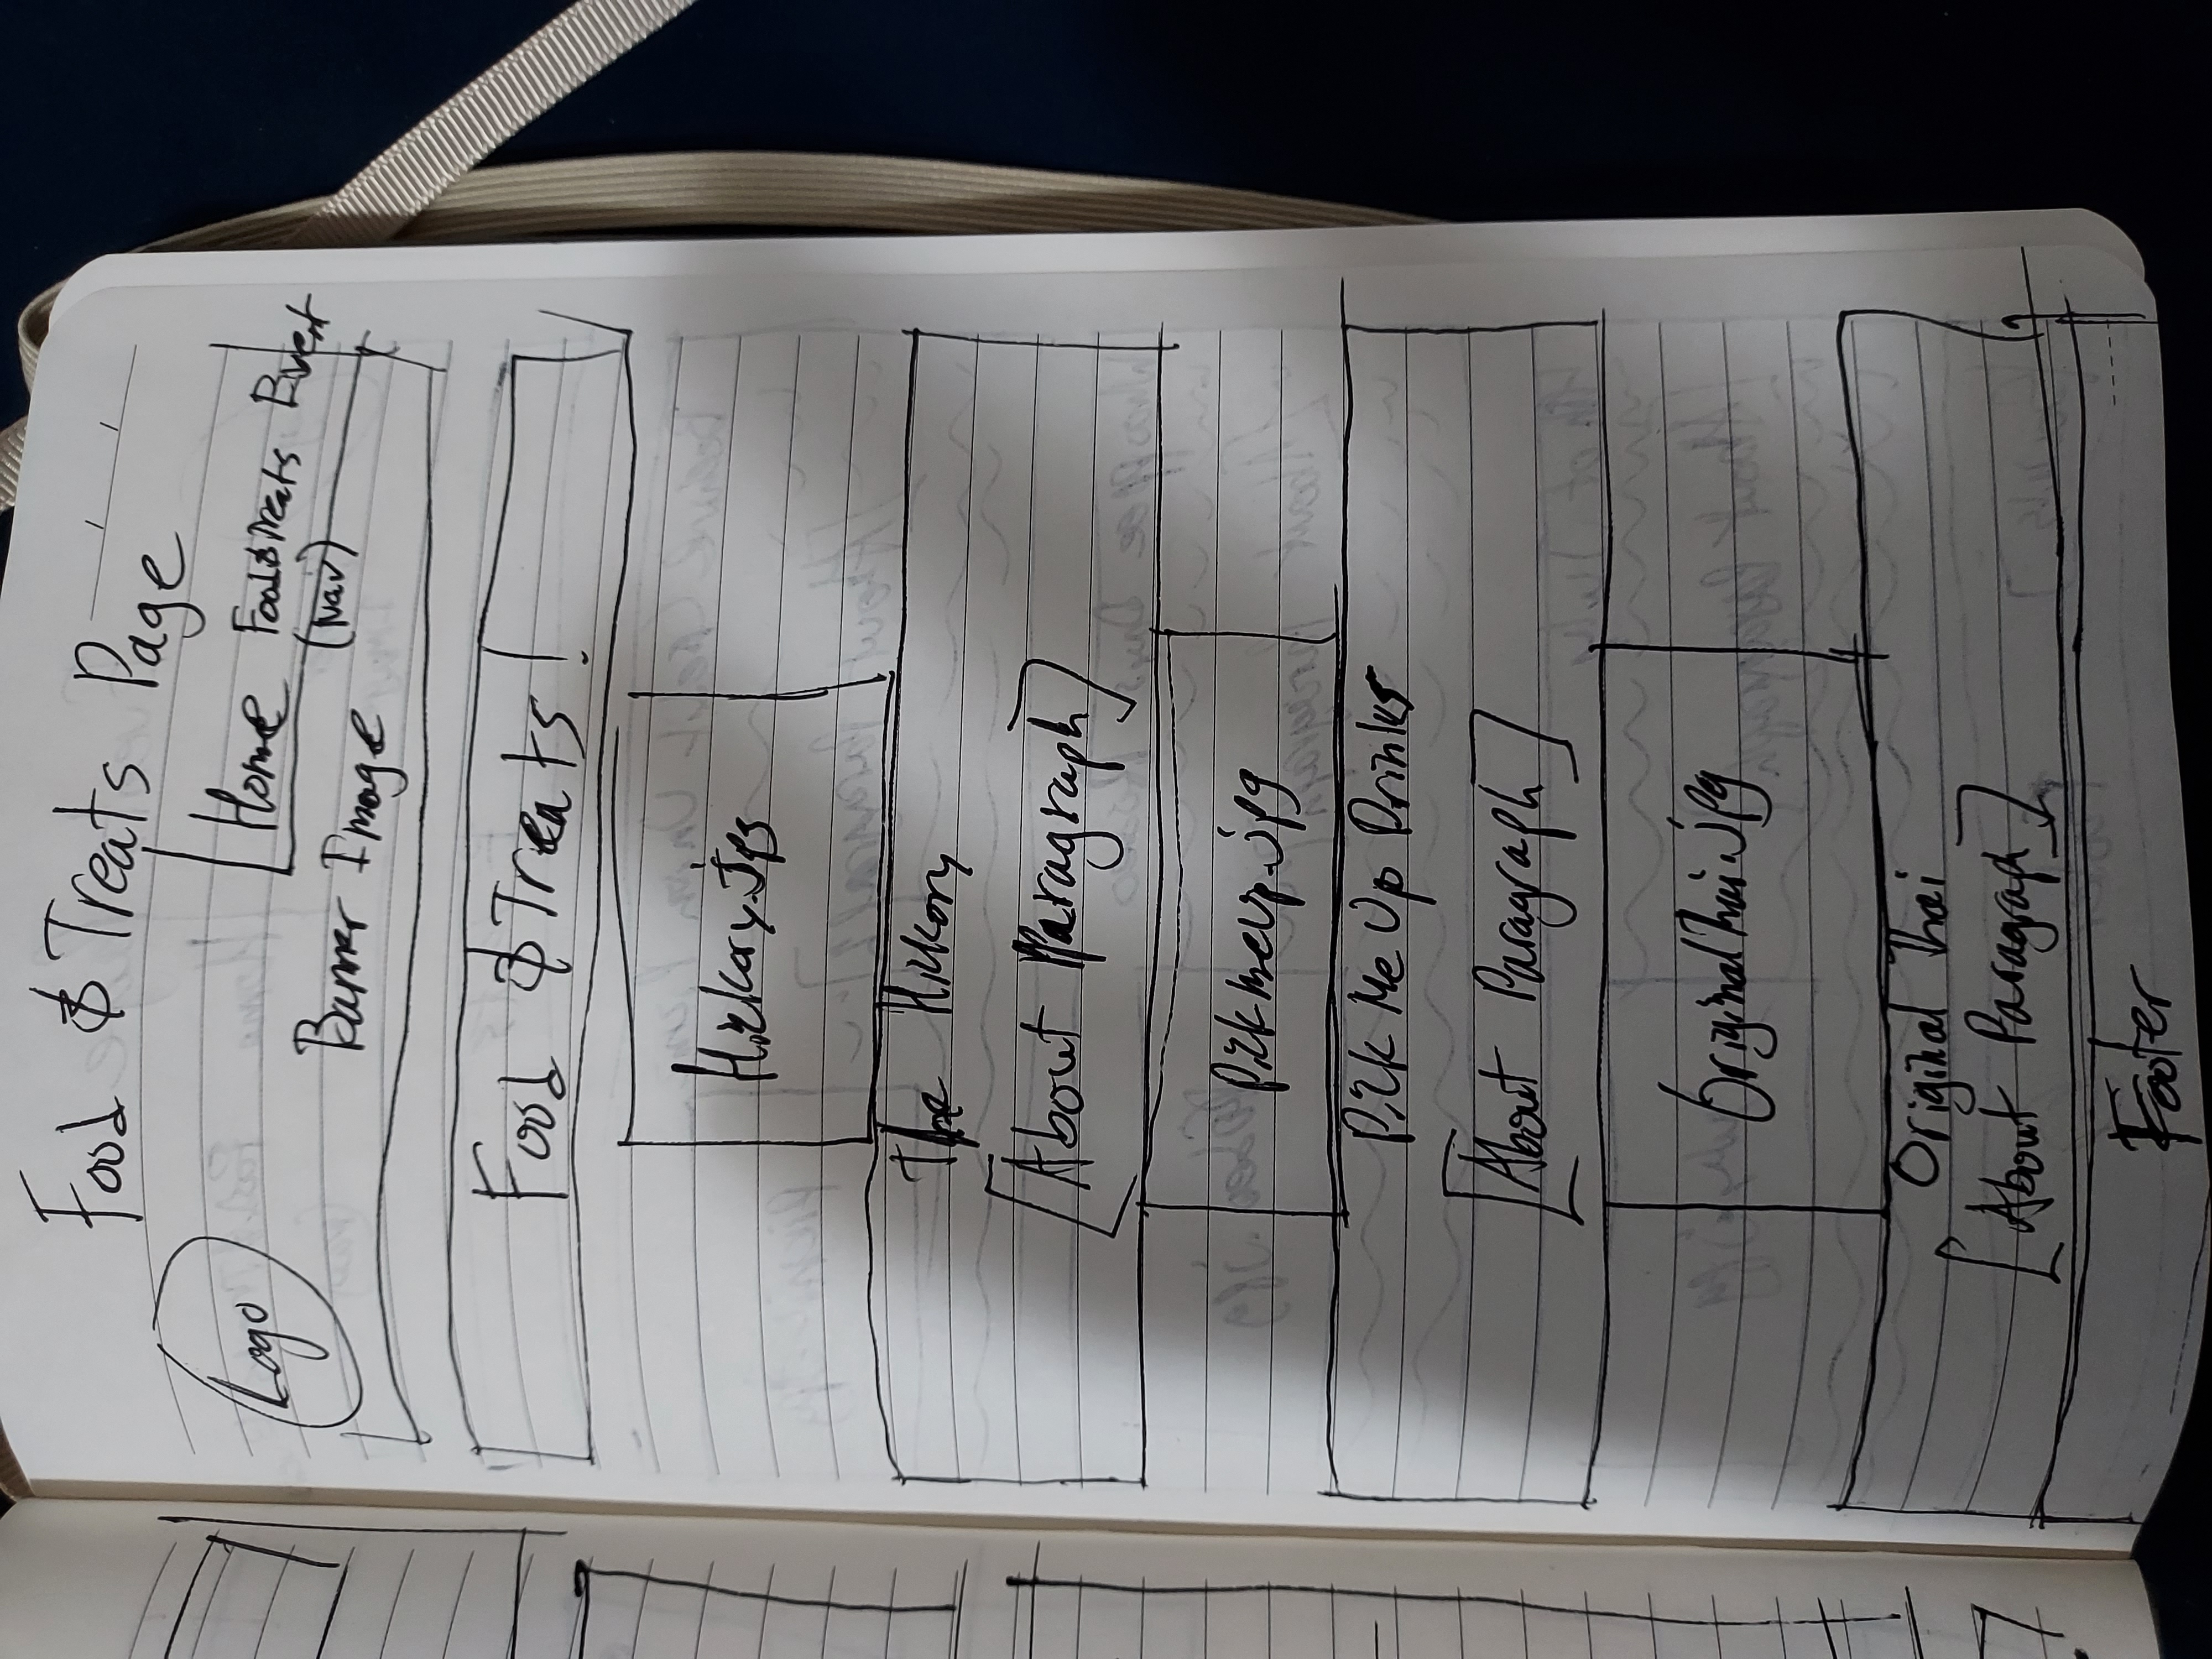 Food & Treats Page
Logo
Home Food&Treats Event
(Nav)
Banner Image
Food & Treats!
Hickory.jpg
The Hickory
[About Paragraph]
Pickmeup.jpg
Pick Me Up Drinks
[About Paragraph]
OriginalThai.jpg
Original Thai
[About Paragraph]
Footer